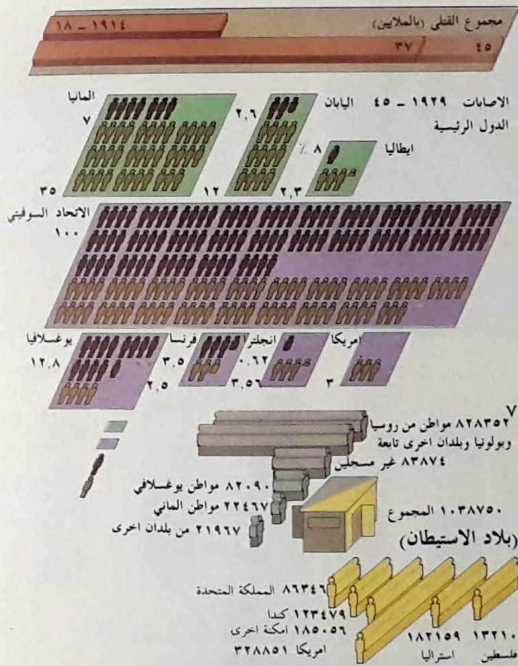 مجموع القتلى (بالملايين)
١٩١٤ – ١٨
٣٧
٤٥
الاصابات ١٩٢٩ – ٤٥
الدول الرئيسية
المانيا
٧
٣٥
اليابان
٢,٦
١٢
ايطاليا
٨ ٪
٢,٣
الاتحاد السوفيتي
١٠٠
يوغسلافيا
١٢,٨
٢,٥
فرنسا
٣,٥
انجلترا
٠,٦٢
٣,٥٦
امريكا
٣
٧
٨٢٨٣٥٢ مواطن من روسيا
وبولونيا وبلدان اخرى تابعة
٨٣٨٧٤ غير مسجلين
٨٢٠٩٠ مواطن يوغسلافي
٢٢٤٦٧ مواطن الماني
٢١٩٦٧ من بلدان اخرى
١٠٣٨٧٥٠ المجموع
(بلاد الاستيطان)
٨٦٣٤٦ المملكة المتحدة
١٢٣٤٧٩ كندا
١٨٥٠٥٦ امكنة اخرى
٣٢٨٨٥١ امريكا
١٨٢١٥٩
استراليا
١٣٢١٠
فلسطين